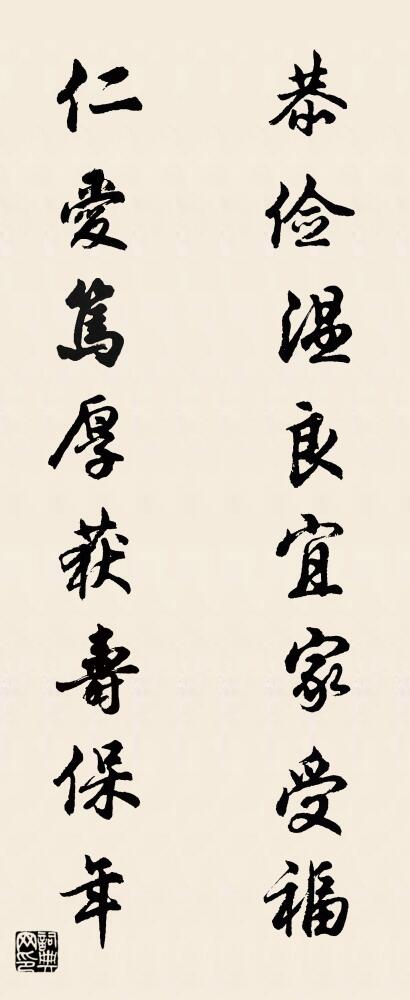 恭俭温良宜家受福
仁愛篤厚获壽保年
詞典网印